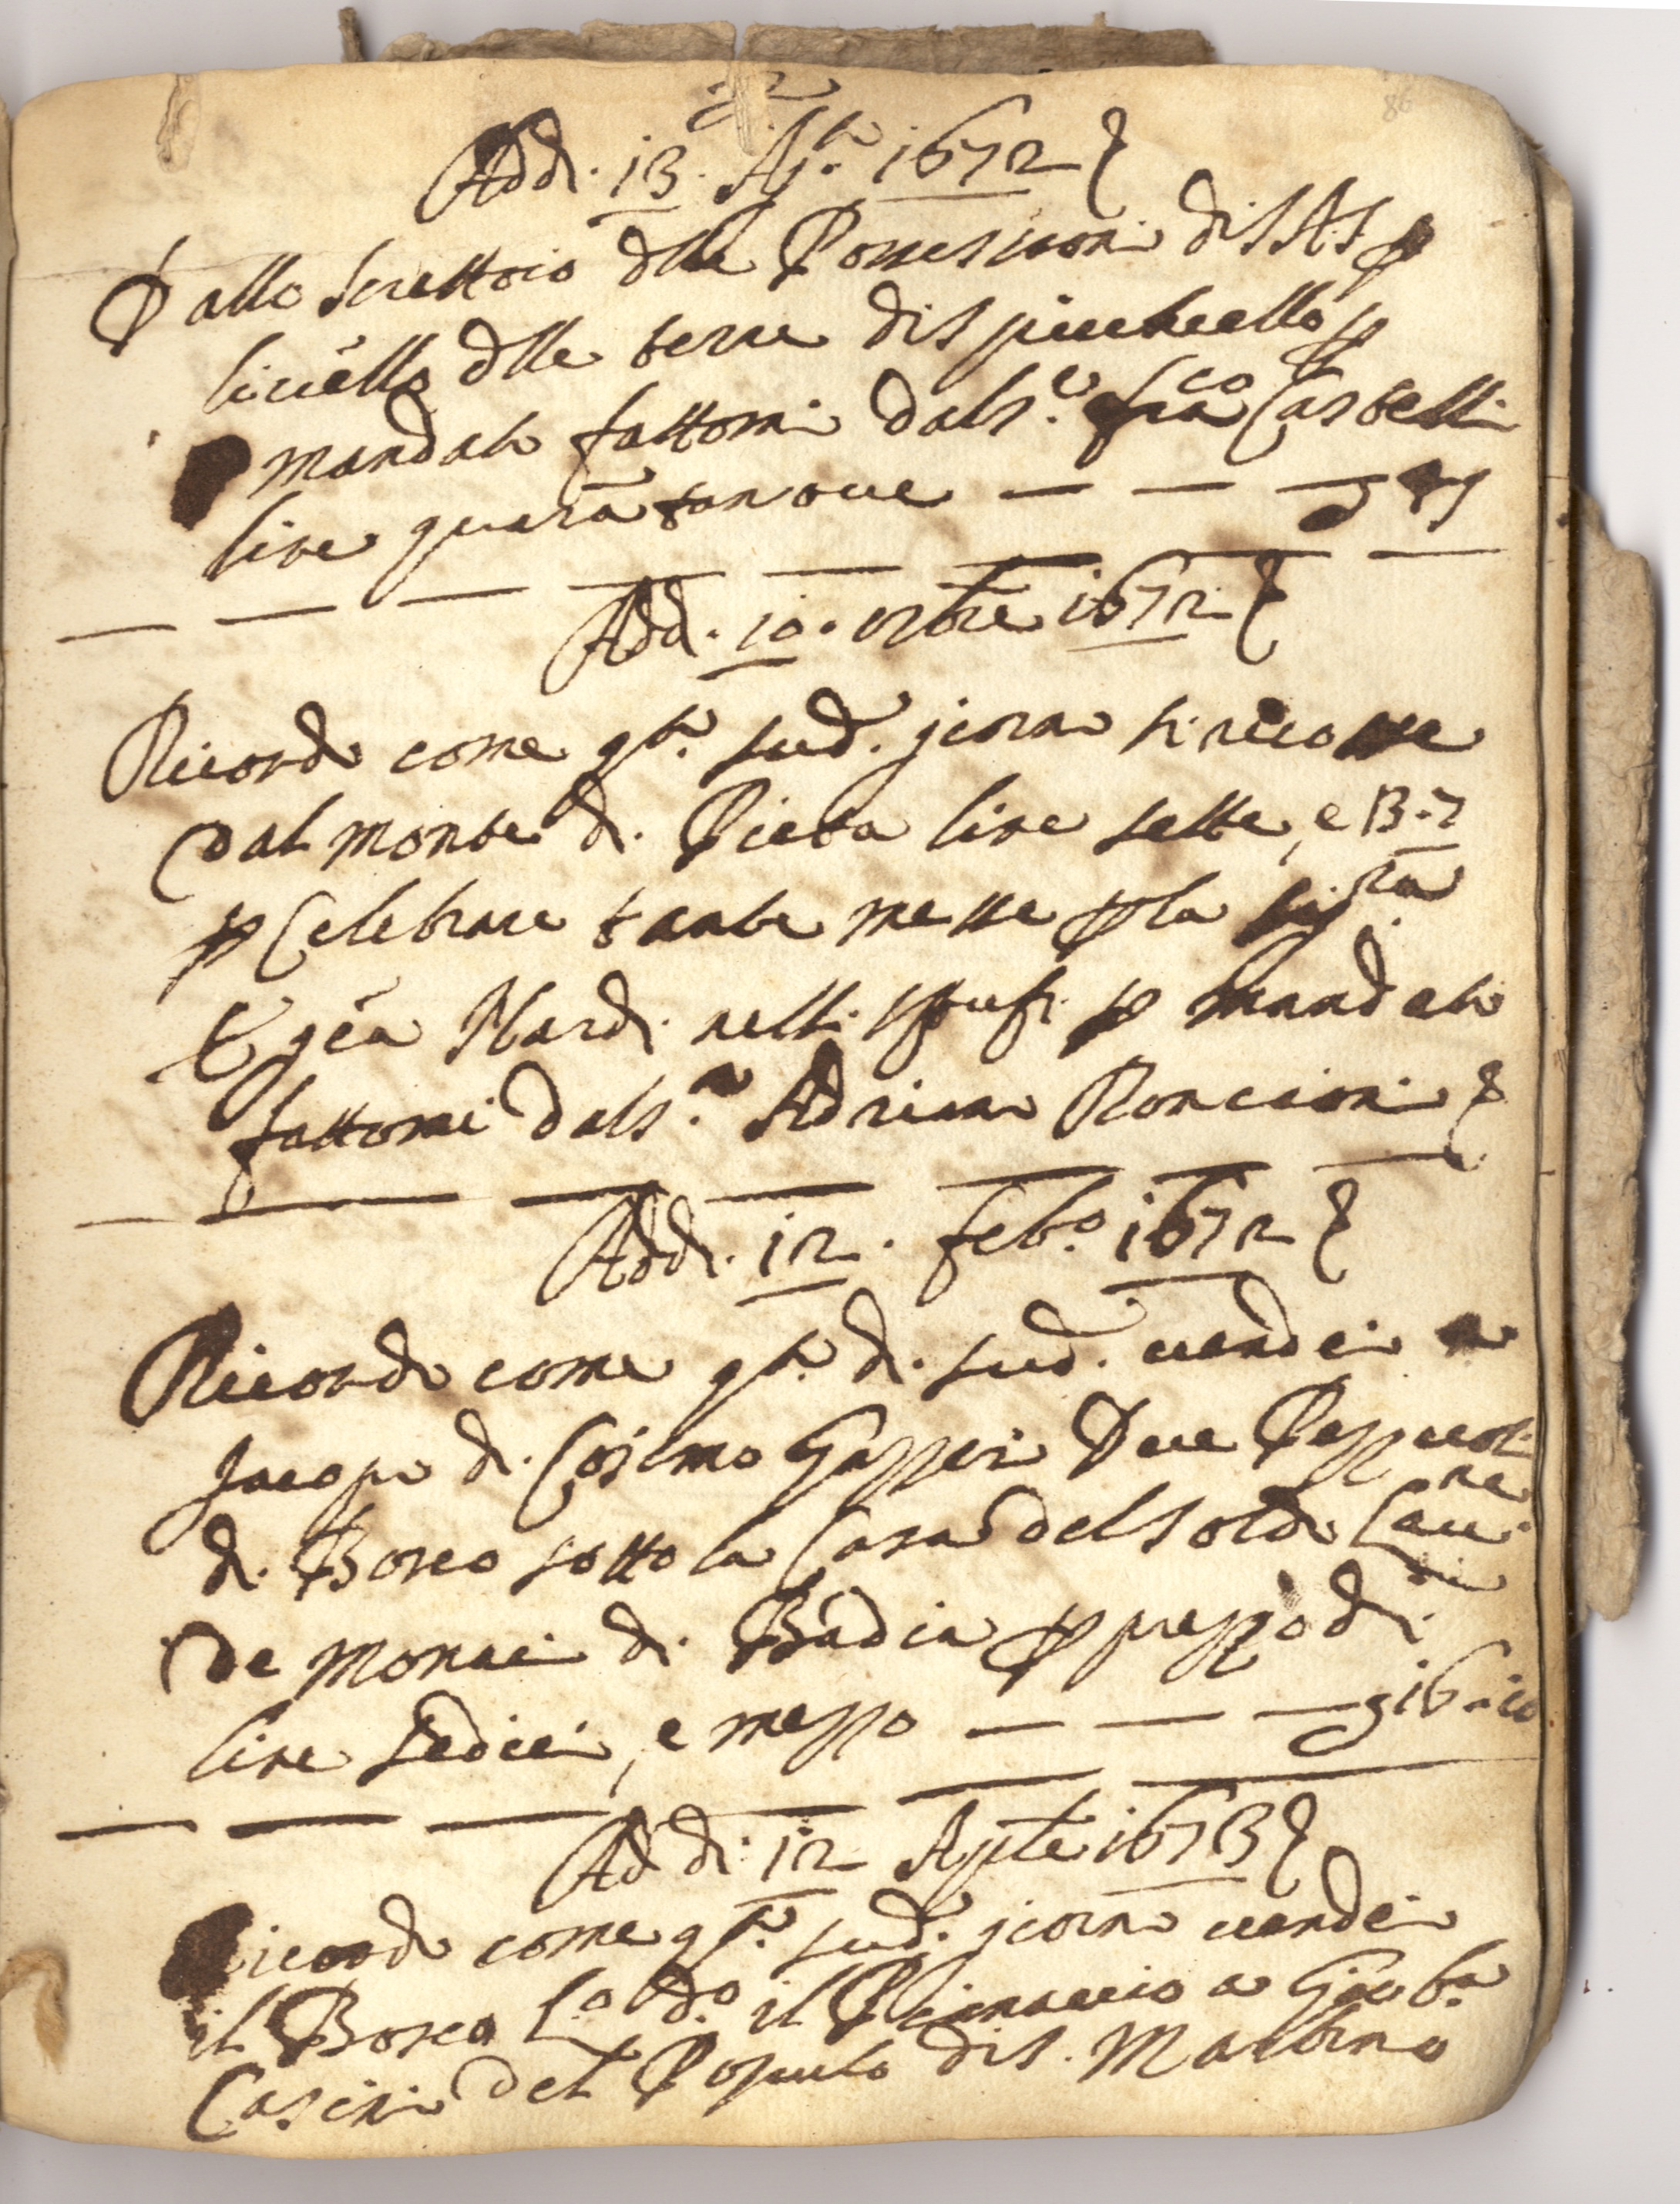 Add. 13. Ag.to 1672
Dallo Scrittoio dlle Possessioni di S.A.S. p
liuello dlle terre di Spicchiello p
mandato fattomi dal s.e fra.co Castelli
lire quarantanoue — — — 49
Add. 10. 9bre 1672
Ricordo come q.to sud. giorno si riscosse
dal monte di Pieta lire sette, e 13.4
p Celebrare tante messe p la
Nardi nelli p mandato
fattomi dal s.re Adriano Roncioni
Addi. 12. feb.o 1672
Ricordo come q.to di sud. uendei a
Jacopo di Cosimo Gazzeri Due Pezzuoli
di Bosco sotto la Casa del Soldo
De Monaci di Badia p prezzo di
lire sedici, e mezzo — — — 16.10
Addi. 12 Aprile 1673
Ricordo come q.to sud. giorno uendei
il Bosco L.o d.o il a Gio: b.a
Casini del Popolo di S. Martino